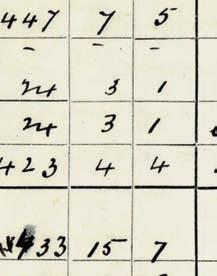 447 7 5
– – –
24 3 1
24 3 1
423 4 4
433 15 7